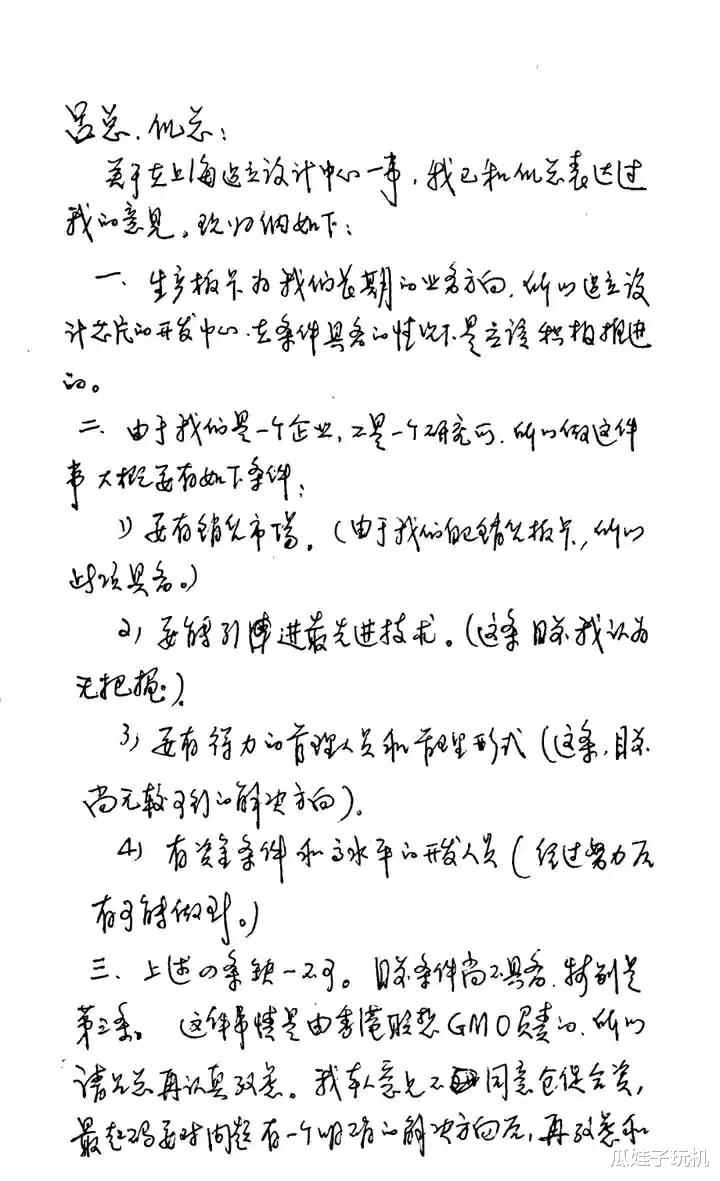 吕总、倪总：
关于在上海建立设计中心一事，我已和倪总表达过
我的意见。现归纳如下：
一、生产板卡为我们长期的业务方向，所以建立设
计芯片的开发中心在条件具备的情况下是应该积极推进
的。
二、由于我们是一个企业，不是一个研究所，所以做这件
事大概要有如下条件：
1) 要有销售市场。（由于我们自己销售板卡，所以
此项具备。）
2) 要能引进最先进技术。（这条目前我认为
无把握）。
3) 要有得力的管理人员和管理形式（这条，目前
尚无较可行的解决方向）。
4) 有资金条件和高水平的开发人员（经过努力后
有可能做到。）
三、上述四条缺一不可。目前条件尚不具备，特别是
第三条。这件事情是由香港联想GMO负责的，所以
请吕总再认真考虑。我本人意见不同意仓促合资，
最起码要对问题有一个明确的解决方向后，再考虑和
瓜娃子玩机